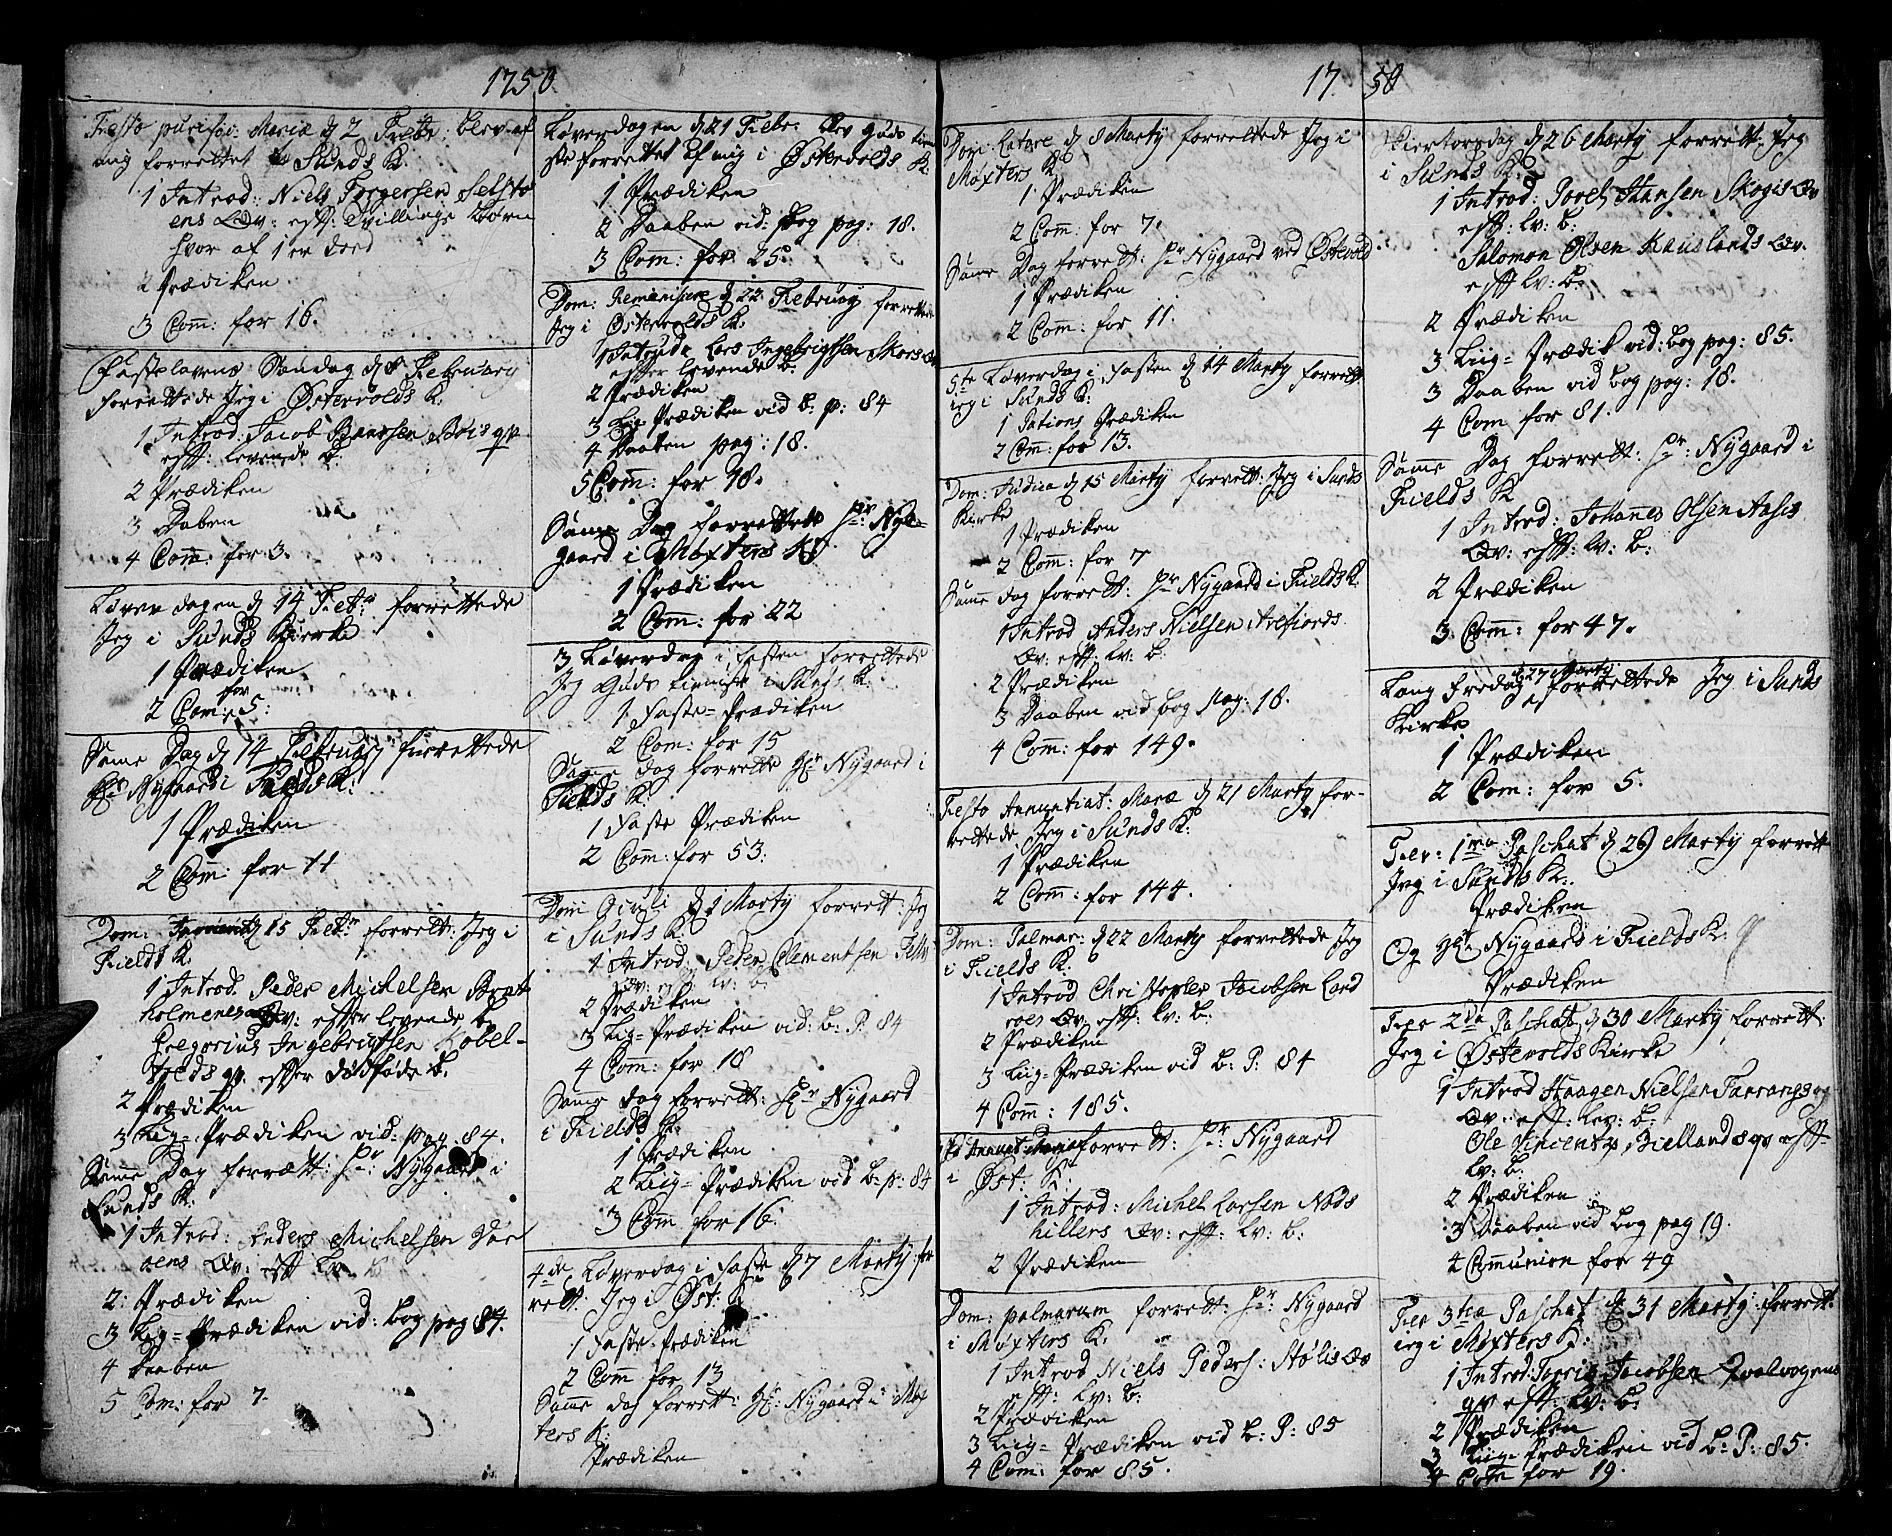 1750.
Festo purific: Mariæ d 2 Febr: blev af
mig forrettet i Sunds K.
1 Introd: Niels Torgersen Selstø
ens Qv: efft: Tvillinge Børn
hvor af 1 er død
2 Prædiken
3 Com: for 16.
Fastelavens Søndag d 8 February
forrettede Jeg i Østervolds K:
1 Introd: Jacob Baarsen Bøis qv
efft: levende B.
2 Prædiken
3 Daben
4 Com: for 3.
Løverdagen d 14 Febr: forrettede
Jeg i Sunds Kierke
1 Prædiken
2 Com: for 5:
Samme Dag d 14 February forrettede
Hr Nygaard i Fields K:
1 Prædiken
2 Com: for 11
Dom: d 15 Febr: forrett: Jeg i
Fields K.
1 Introd. Peder Michelsen Brat
holmens Qv: effter levende B.
Gregorius Ingebrigtsen Kobel-
tveds qv. effter dødføde B.
2 Prædiken
3 Liig-Prædiken vid: pag: 84.
Samme Dag forrett: Hr: Nygaard i
Sunds K.
1 Introd: Anders Michelsen
Qv: efft Lv: B
2: Prædiken
3 Liig-Prædiken vid: bog pag 84.
4 Daaben
5 Com: for 7.
Løverdagen d 21 Febr. blev Guds tiene
ste forrettet af mig i Østervolds K:
1 Prædiken
2 Daaben vid: bog pag: 18.
3 Com: for 25.
Dom: Reminiscere d 22 February forrettede
Jeg i Østervolds K:
1 Introd: Lars Ingebrigtsen Skars Qv
effter levende B.
2 Prædiken
3 Liig Prædiken vid B: p: 84
4 Daaben pag: 18.
5 Com: for 78.
Samme Dag forrettede Hr Nye-
gaard i Møxters K.
1 Prædiken
2 Com: for 22
3 Løverdag i Fasten forrettede
Jeg Guds tieniste i Sunds K:
1 Faste-Prædiken
2 Com: for 15
Samme dag forrette Hr Nygaard i
Fields K.
1 Faste Prædiken
2 Com: for 53:
Dom Oculi d 1 Marty forrett: Jeg
i Sunds K.
1 Introd: Peder Clementsen
Qv: efft: lv: B.
2 Prædiken
3 Liig-Prædiken vid: B: P: 84
4 Com: for 18
Samme dag forrett: Hr Nygaard
i Fields K:
1 Prædiken
2 Liig-Prædiken vid B: p: 84
3 Com for 16.
4de Løverdag i Faste d 7 Marty for
rett: Jeg i Øst: K
1 Faste-Prædiken
2 Com for 13
Samme dag forrett: Hr: Nygaard i Møx
ters K:
Prædiken
17 50
Dom: Lætare d 8 Marty forrettede Jeg i
Møxters K:
1 Prædiken
2 Com: for 7.
Samme Dag forrett: Hr Nygaard ved Østevold
1 Prædiken
2 Com: for 11.
5te Løverdag i Fasten d 14 Marty forrett
ieg i Sunds K:
1 Pations Prædiken
2 Com: for 13.
Dom: Judica d 15 Marty forrett: Jeg i Sunds
Kirke
1 Prædiken
2 Com: for 7
Samme dag forrett: Hr Nygaard i Fields K:
1 Introd Anders Nielsen Arefiords
Qv: efft: lv: B:
2 Prædiken
3 Daaben vid bog pag: 18.
4 Com: for 149.
Festo Annuntiat: Mariæ d 21 Marty for-
rettede Jeg i Sunds K:
1 Prædiken
2 Com: for 144.
Dom: Palmar: d 22 Marty forrettede Jeg
i Fields K:
1 Introd Christopher Jacobsen Land
roes Qv: efft: lv: B:
2 Prædiken
3 Liig-Prædiken vid B: P: 84
4 Com: 185.
forrett: Hr: Nygaard
i Øst: K:
1 Introd: Michel Larsen Nøds
hillers Qv: efft: lv: B:
2 Prædiken
Dom: palmarum forrett: Hr: Nygaard
i Møxters K:
1 Introd Niels Peders: Stølis Qv
efft: lv: B:
2 Prædiken
3 Liig-Prædiken vid B: P: 85
4 Com: for 85.
Skiertorsdag d 26 Marty forrett: Jeg
i Sunds K:
1 Introd: Joreh Hansen Skogis Qv
efft: lv: B:
Salomon Olsen Kauslands Qv.
efft lv: B:
2 Prædiken
3 Liig-Prædik vid: bog pag: 85.
3 Daaben vid bog pag: 18.
4 Com for 81.
Samme Dag forrett: Hr: Nygaard i
Fields K
1 Introd: Johannes Olsen Aases
Qv: efft: lv: B:
2 Prædiken
3 Com: for 47.
Lang Fredag d 27 Marty forrettede Jeg i Sunds
Kirke
1 Prædiken
2 Com: for 5.
Fer: 1ma Paschat d 29 Marty forrett
Jeg i Sunds K:
Prædiken
Og Hr Nygaard i Fields K:
Prædiken
Fer 2da Paschat d 30 Marty forrett:
Jeg i Østevolds Kirke
1 Introd Haagen Nielsen Tarrangs
Qv: efft: lev: B:
Ole Vincentz Biellands qv efft
lv: B:
2 Prædiken
3 Daaben vid bog pag 19.
4 Communion for 49
Fer 3tia Paschat d 31 Marty forrett:
ieg i Møxters K:
1 Introd: Jacobsen Qvalvogens
qv efft: lv: B:
2 Prædiken
3 Liig-Prædiken vid B: P: 85.
4 Com for 19.